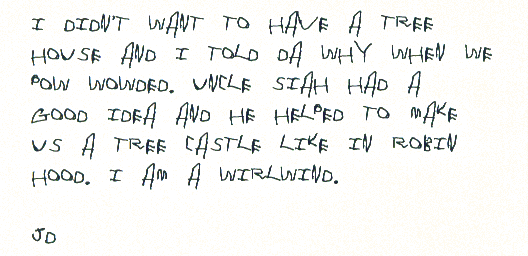 I DIDN'T WANT TO HAVE A TREE
HOUSE AND I TOLD DA WHY WHEN WE
POW WOWDED. UNCLE SIAH HAD A
GOOD IDEA AND HE HELPED TO MAKE
US A TREE CASTLE LIKE IN ROBIN
HOOD. I AM A WIRLWIND.
JD